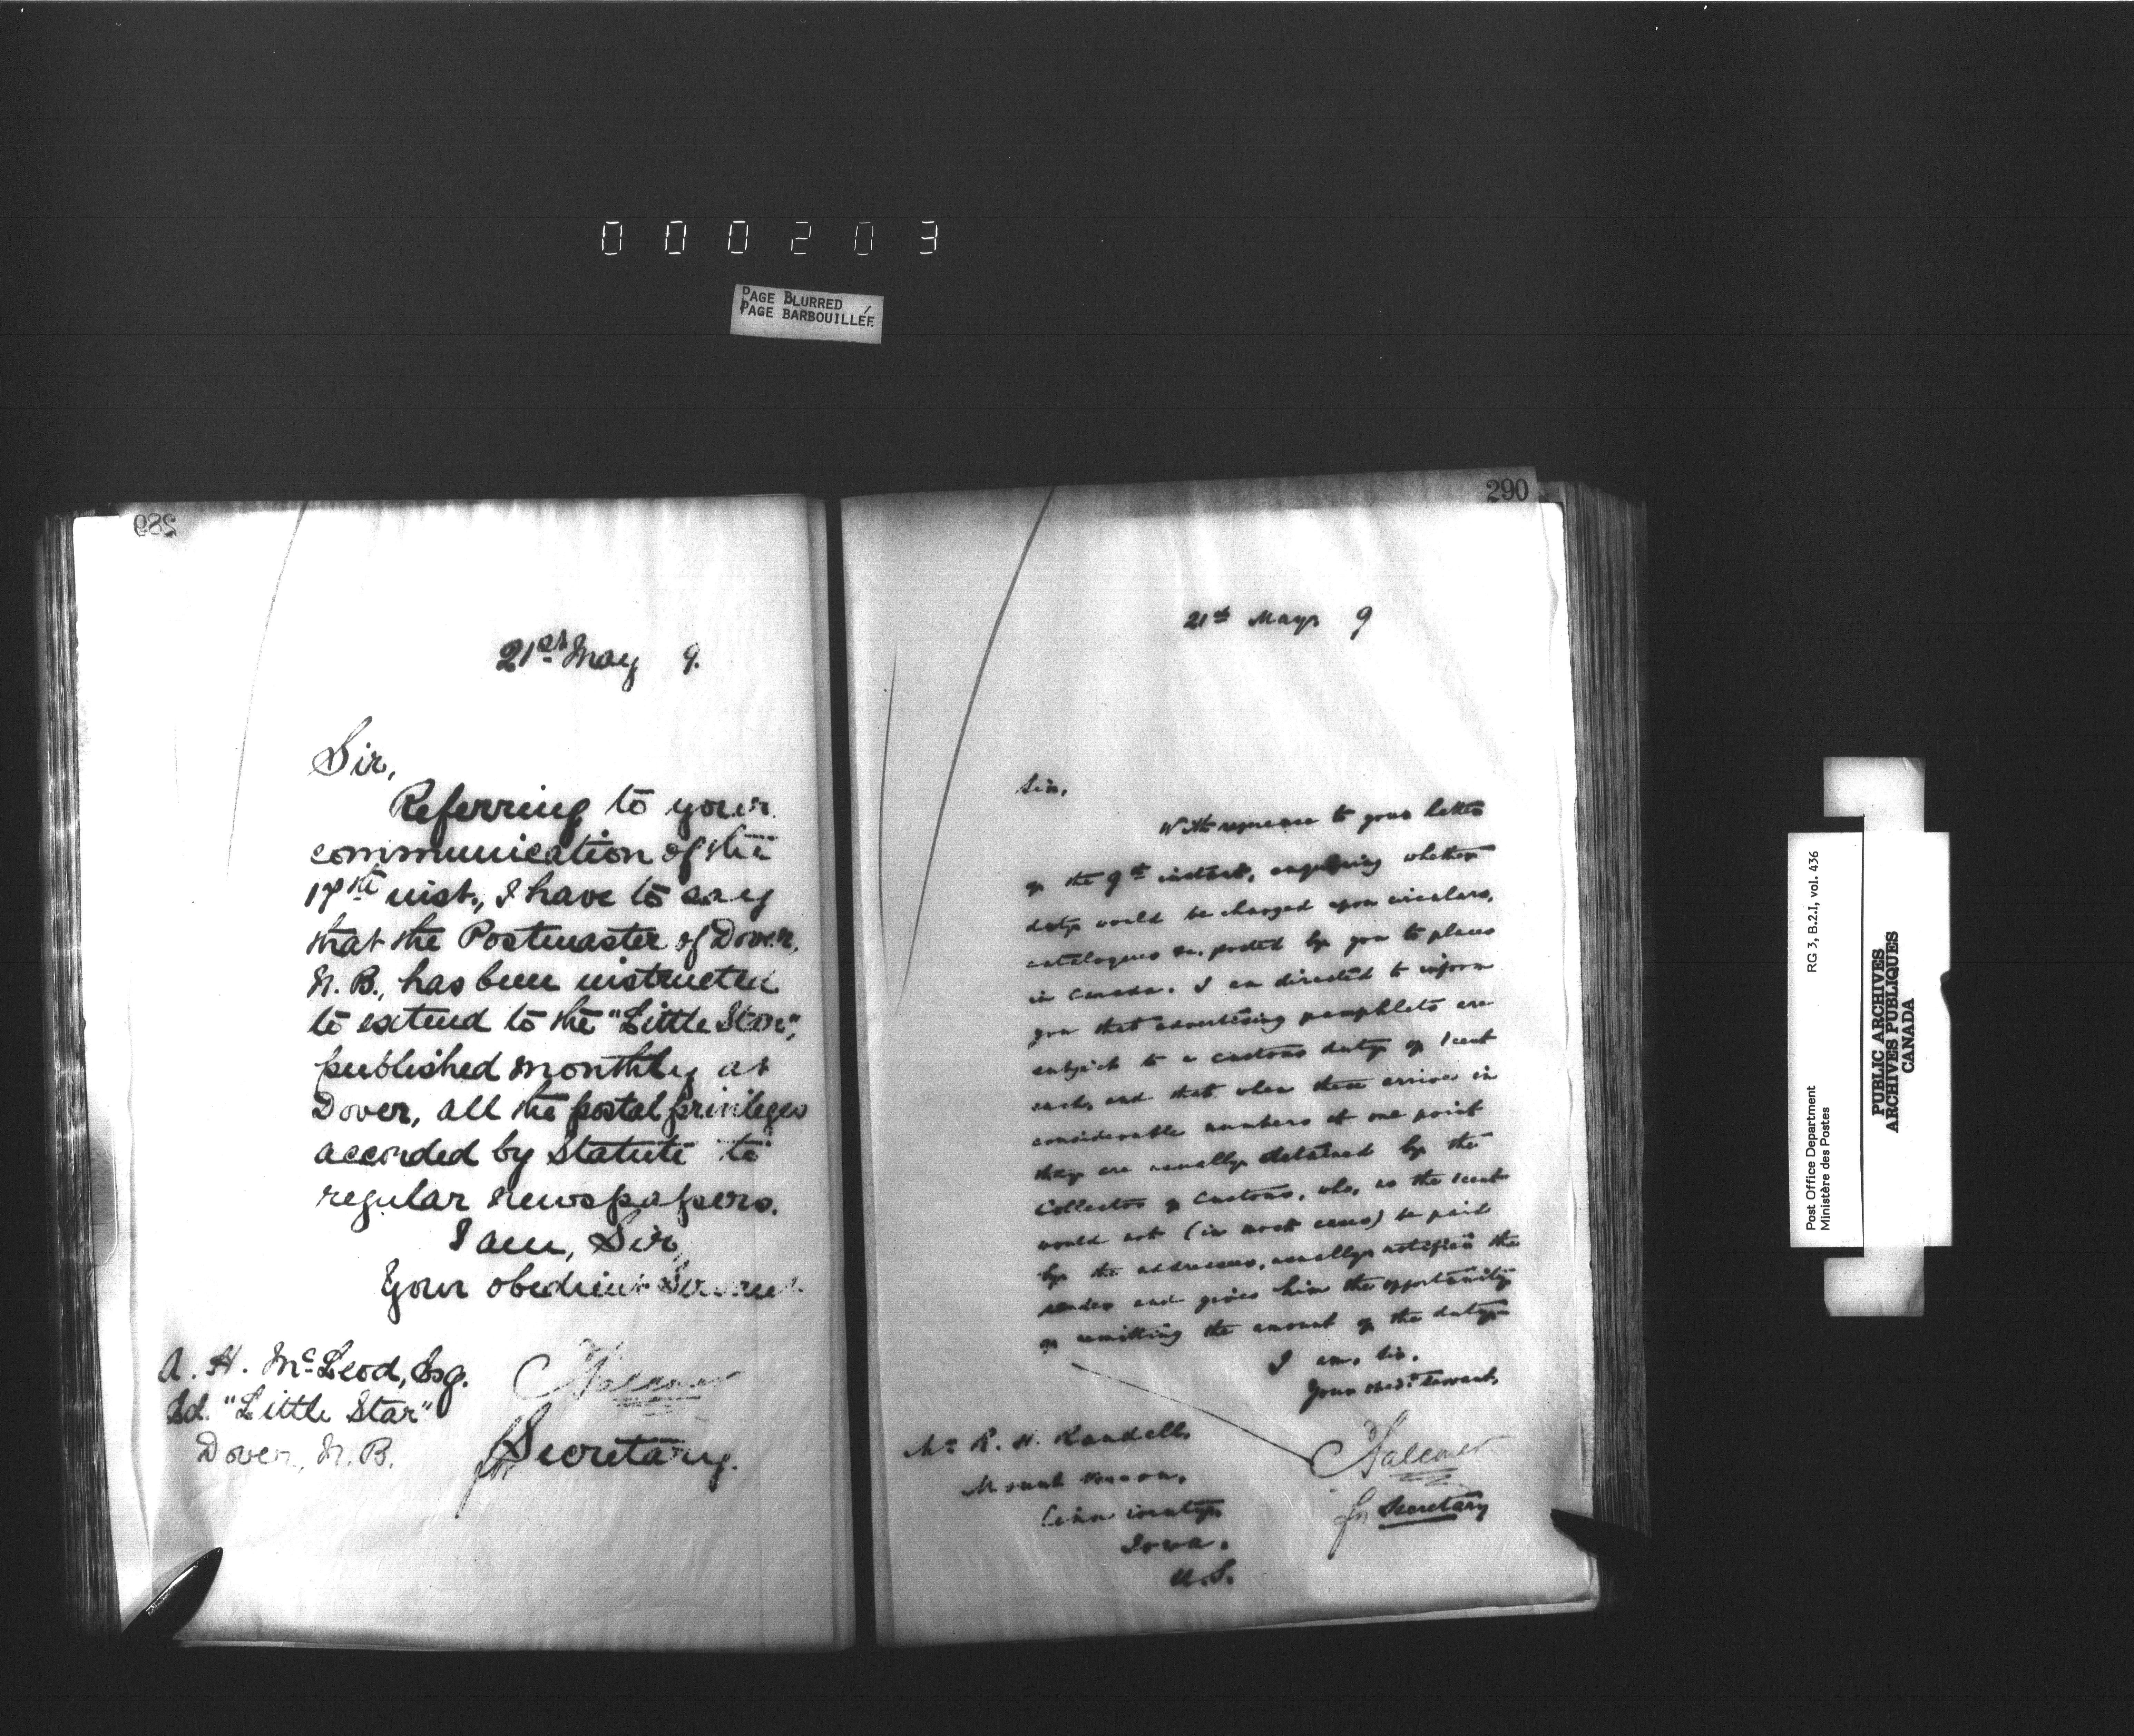 000203
PAGE BLURRED
PAGE BARBOUILLÉE
289
21st May 9.
Sir,
Referring to your
communication of the
17th inst., I have to say
that the Postmaster of Dover,
N. B., has been instructed
to extend to the "Little Star",
published monthly at
Dover, all the postal privileges
accorded by Statute to
regular newspapers.
I am, Sir,
Your obedient Servant
A. H. McLeod, Esq.
Ed. "Little Star"
Dover, N. B.
for Secretary.
290
21st May 9
Sir,
With reference to your letter
of the 9th instant, enquiring whether
duty would be charged upon circulars,
catalogues &c, posted by you to places
in Canada. I am directed to inform
you that advertising pamphlets are
subject to a customs duty of 1 cent
each, and that when these arrive in
considerable numbers at one point
they are usually detained by the
Collector of Customs, who, as the 1 cent
would not (in most cases) be paid
by the addressees, usually notifies the
sender and gives him the opportunity
of remitting the amount of the duty.
I am, Sir,
Your obedt Servant,
Mr R. H. Randall,
Mount Vernon,
Linn County,
Iowa.
U.S.
for Secretary
Post Office Department RG 3, B.2.I, vol. 436
Ministère des Postes
PUBLIC ARCHIVES
ARCHIVES PUBLIQUES
CANADA